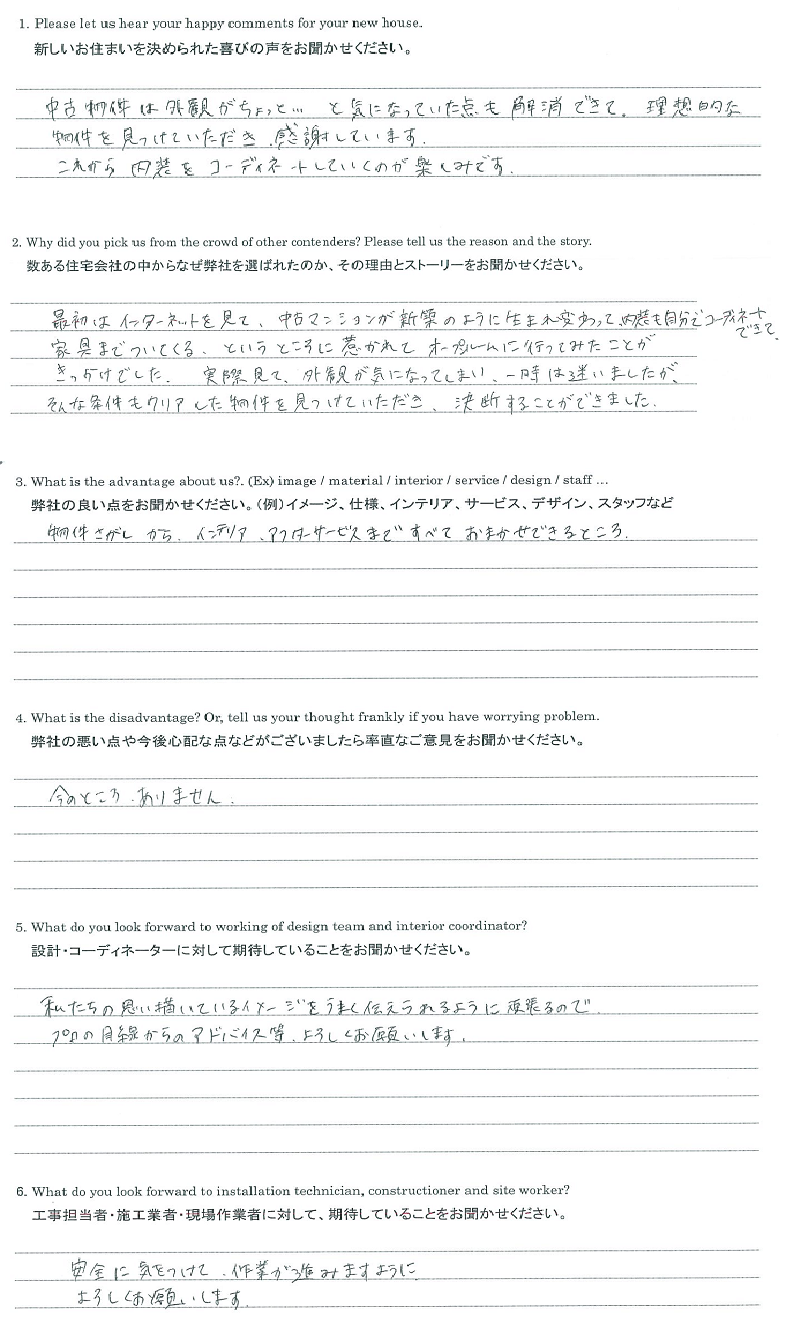 1. Please let us hear your happy comments for your new house.
新しいお住まいを決められた喜びの声をお聞かせください。
中古物件は外観がちょっと… と気になっていた点も解消できて、理想的な
物件を見つけていただき、感謝しています。
これから内装をコーディネートしていくのが楽しみです。
2. Why did you pick us from the crowd of other contenders? Please tell us the reason and the story.
数ある住宅会社の中からなぜ弊社を選ばれたのか、その理由とストーリーをお聞かせください。
最初はインターネットを見て、中古マンションが新築のように生まれ変わって、内装も自分でコーディネート
できて、
家具までついてくる、というところに惹かれてオープンルームに行ってみたことが
きっかけでした。 実際見て、外観が気になってしまい、一時は迷いましたが、
そんな条件もクリアした物件を見つけていただき、決断することができました。
3. What is the advantage about us?. (Ex) image / material / interior / service / design / staff ...
弊社の良い点をお聞かせください。（例）イメージ、仕様、インテリア、サービス、デザイン、スタッフなど
物件さがしから、インテリア、アフターサービスまですべておまかせできるところ。
4. What is the disadvantage? Or, tell us your thought frankly if you have worrying problem.
弊社の悪い点や今後心配な点などがございましたら率直なご意見をお聞かせください。
今のところ、ありません。
5. What do you look forward to working of design team and interior coordinator?
設計・コーディネーターに対して期待していることをお聞かせください。
私たちの思い描いているイメージをうまく伝えられるように頑張るので
プロの目線からのアドバイス等、よろしくお願いします。
6. What do you look forward to installation technician, constructioner and site worker?
工事担当者・施工業者・現場作業者に対して、期待していることをお聞かせください。
安全に気をつけて、作業が進みますように
よろしくお願いします。